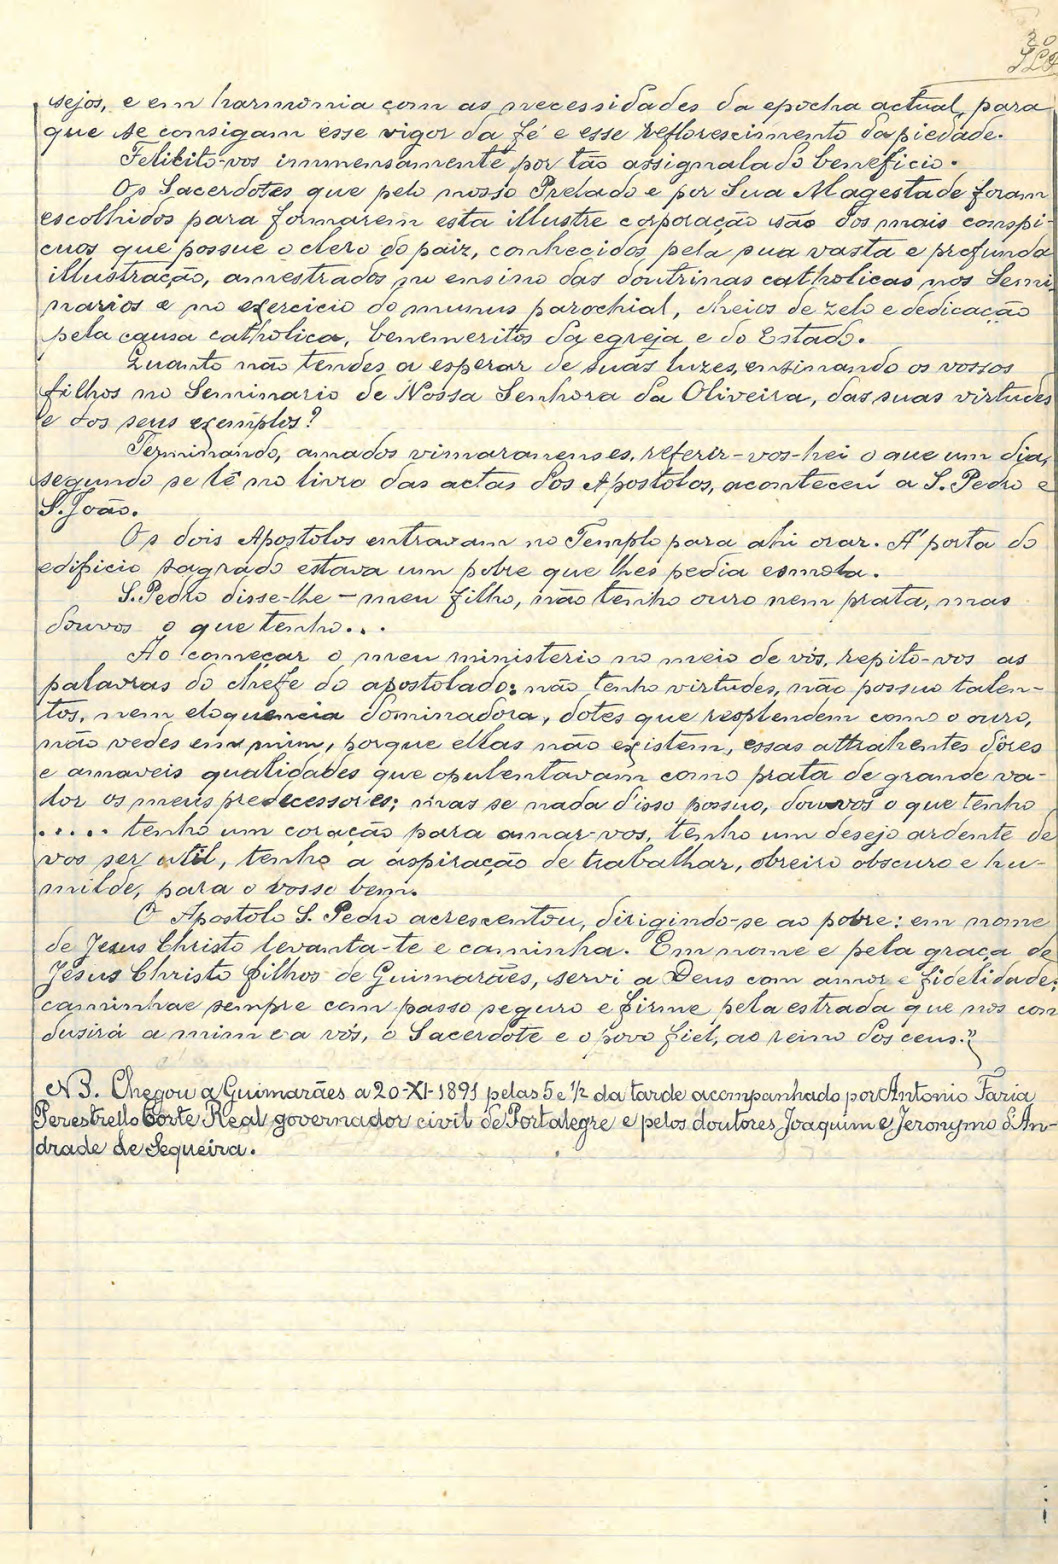 20
sejos, e em harmonia com as necessidades da epocha actual, para
que se consigam esse vigor da fé e esse reflorescimento da piedade.
Felicito-vos immensamente por tão assignalado beneficio.
Os Sacerdotes que pelo nosso Prelado e por Sua Magestade foram
escolhidos para formarem esta illustre corporação são dos mais conspi-
cuos que possue o clero do paiz, conhecidos pela sua vasta e profunda
illustração, amestrados no ensino das doutrinas catholicas nos Semi-
narios e no exercicio do munus parochial, cheios de zelo e dedicação
pela causa catholica, benemeritos da egreja e do Estado.
Quanto não tendes a esperar de suas luzes, ensinando os vossos
filhos no Seminario de Nossa Senhora da Oliveira, das suas virtudes
e dos seus exemplos?
Terminando, amados vimaranenses, referir-vos-hei o que um dia,
segundo se lê no livro das actas dos Apostolos, aconteceu a S. Pedro e
S. João.
Os dois Apostolos entravam no Templo para ahi orar. A' porta do
edificio sagrado estava um pobre que lhes pedia esmola.
S. Pedro disse-lhe - meu filho, não tenho ouro nem prata, mas
douvos o que tenho...
Ao começar o meu ministerio no meio de vós, repito-vos as
palavras do chefe do apostolado: não tenho virtudes, não possuo talen-
tos, nem eloquencia dominadora, dotes que resplendem como o ouro,
não vedes em mim, porque ellas não existem, essas attrahentes dôres
e amaveis qualidades que opulentavam como prata de grande va-
lor os meus predecessores; mas se nada d'isso possuo, douvos o que tenho
..... tenho um coração para amar-vos, tenho um desejo ardente de
vos ser util, tenho a aspiração de trabalhar, obreiro obscuro e hu-
milde, para o vosso bem.
O Apostolo S. Pedro acrescentou, dirigindo-se ao pobre: em nome
de Jesus Christo levanta-te e caminha. Em nome e pela graça de
Jesus Christo filhos de Guimarães, servi a Deus com amor e fidelidade;
caminhae sempre com passo seguro e firme pela estrada que nos con
dusirá a mim e a vós, o Sacerdote e o povo fiel, ao reino dos ceus."
NB. Chegou a Guimarães a 20-XI-1891 pelas 5 e 1/2 da tarde acompanhado por Antonio Faria
Perestrello Corte Real governador civil de Portalegre e pelos doutores Joaquim e Jeronymo d'An-
drade de Sequeira.